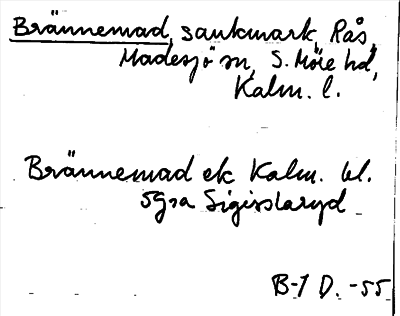 Brännemad, sankmark, Rås,
Madesjö sn, S. Möre hd,
Kalm. l.
Brännemad ek Kalm. bl.
5gra Sigislaryd
B-1 D. -55